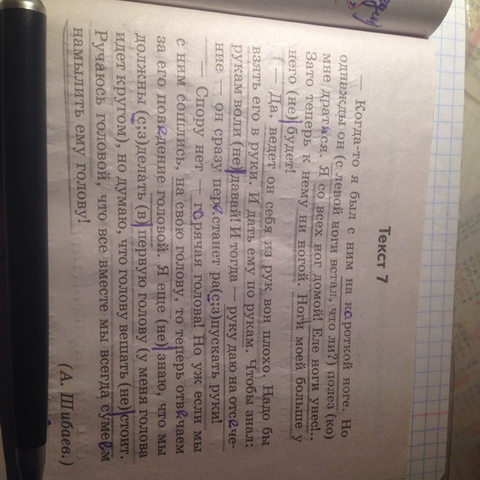 Текст 7
— Когда-то я был с ним на короткой ноге. Но
однажды он (с левой ноги встал, что ли?) полез (ко)
мне драться. Я со всех ног домой! Еле ноги унес!..
Зато теперь к нему ни ногой. Ноги моей больше у
него (не) будет!
— Да, ведет он себя из рук вон плохо. Надо бы
взять его в руки. И дать ему по рукам. Чтобы знал:
рукам воли (не) давай! И тогда — руку даю на отсече-
ние — он сразу перестанет ра(с;з)пускать руки!
— Спору нет — горячая голова! Но уж если мы
с ним сошлись, на свою голову, то теперь отвечаем
за его поведение головой. Я еще (не) знаю, что мы
должны (с;з)делать (в) первую голову (у меня голова
идет кругом), но думаю, что голову вешать (не) стоит.
Ручаюсь головой, что все вместе мы всегда сумеем
намылить ему голову!
(А. Шибаев.)